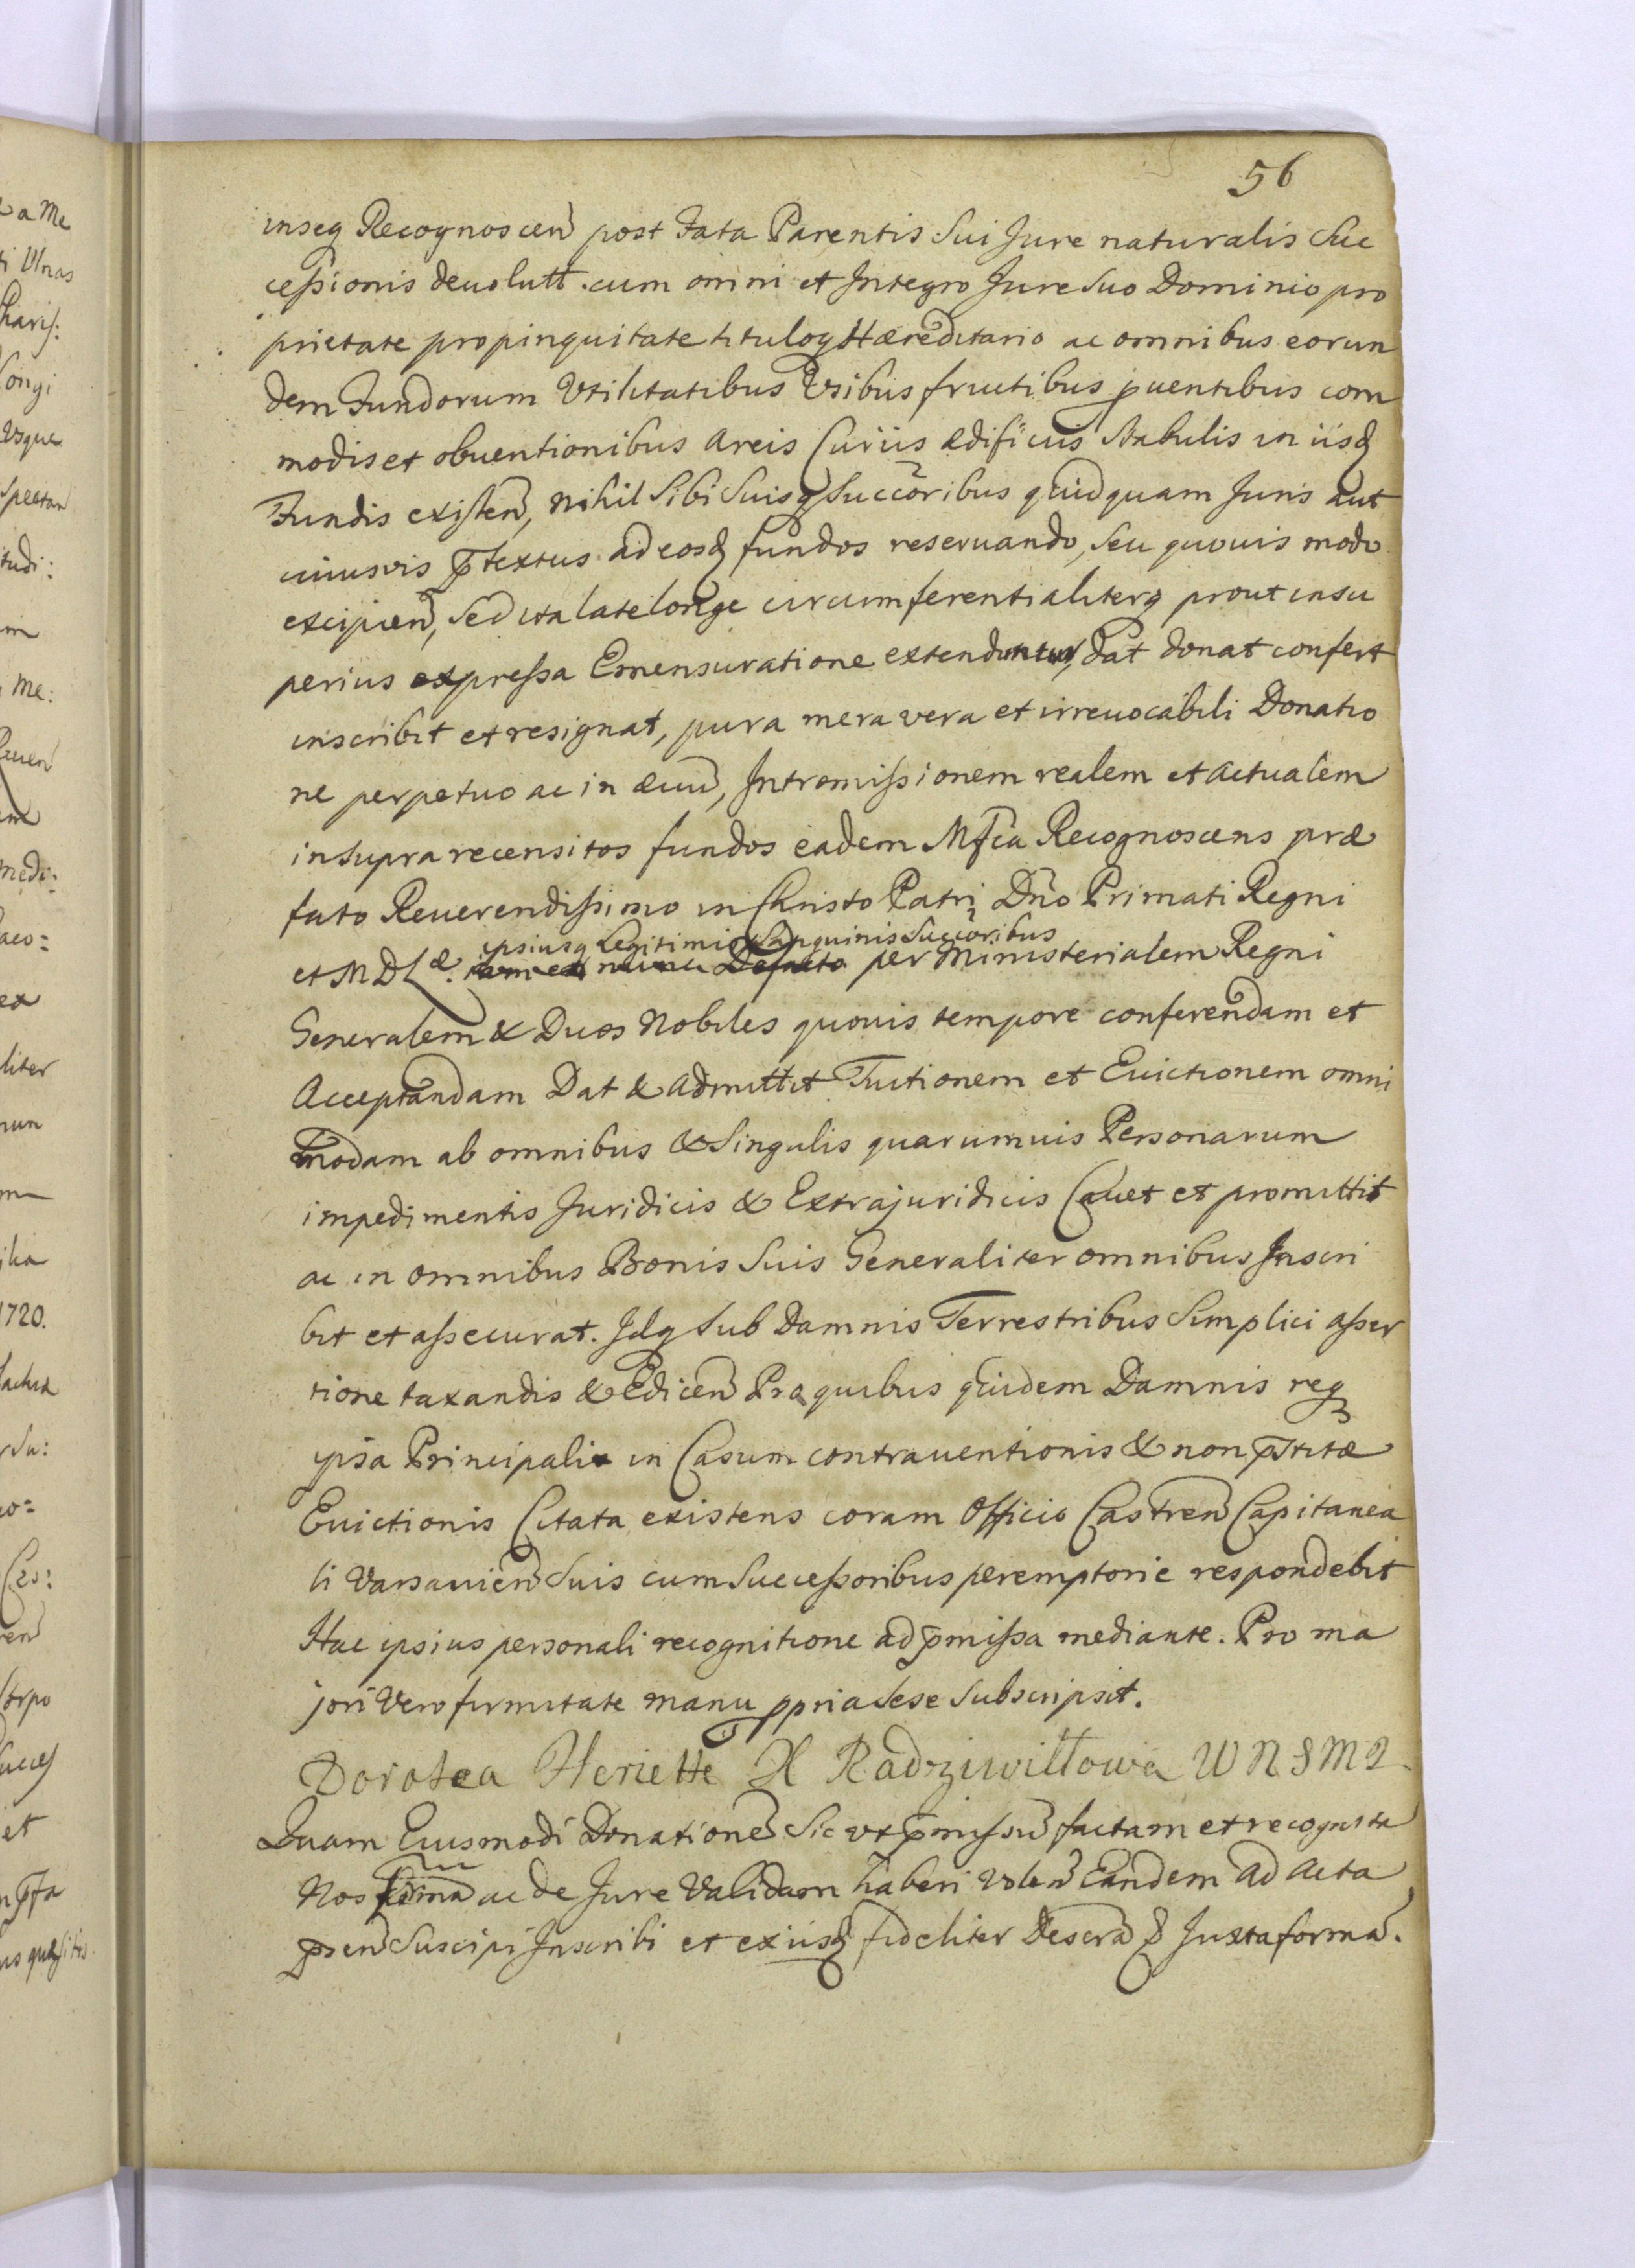 56
inseq Recognoscen post Fata Parentis Sui Jure naturalis Suc
cessionis devolutt. cum omni et Integro Jure Suo Dominio pro
prietate propinquitate tituloq Hæreditario ac omnibus eorun
dem Fundorum Utilitatibus Usibus fructibus pventibus com
modis et obventionibus Areis Curiis ædificiis Stabulis in iisq
Fundis existen, nihil Sibi Suisq Succoribus quidquam Juris aut
cuiusvis ptextus ad eosq fundos reservando, seu quovis modo
excipien, Sed ita late longe circumferentialiterq prout in su
perius expressa Emensuratione extenduntur, dat donat confert
inscribit et resignat, pura mera vera et irrevocabili Donatio
ne perpetuo ac in ævu, Intromissionem realem et Actualem
in supra recensitos fundos eadem Mfica Recognoscens præ
fato Reverendissimo in Christo Patri Dno Primati Regni
ipsiusq Legitimis Sanguinis Succoribus
et M D L æ. per Ministerialem Regni
Generalem & Duos Nobiles quovis tempore conferendam et
Acceptandam Dat & Admittit Tuitionem et Evictionem omni
modam ab omnibus & Singulis quarumvis Personarum
impedimentis Juridicis & Extrajuridicis Cavet et promittit
ac in omnibus Bonis Suis Generaliter omnibus Inscri
bit et assecurat. Idq Sub Damnis Terrestribus Simplici asser
tione taxandis & Edicen Pro quibus quidem Damnis req
ipsa Principali in Casum contraventionis & non pstitæ
Evictionis Citata existens coram Officio Castren Capitanea
li Varsavien Suis cum Successoribus peremptorie respondebit
Hac ipsius personali recognitione ad pmissa mediante. Pro ma
jori Vero firmitate manu ppria Sese Subscripsit.
Dorotea Heriette X Radziwiłłowa W N S M L
Quam Eiusmodi Donatione Sic ut pmissu factam et recognita
Nos firma ac de Jure Validam haberi volen Eandem ad Acta
psen Suscipi Inscribi et ex iisq fideliter Descra Juxta forma.